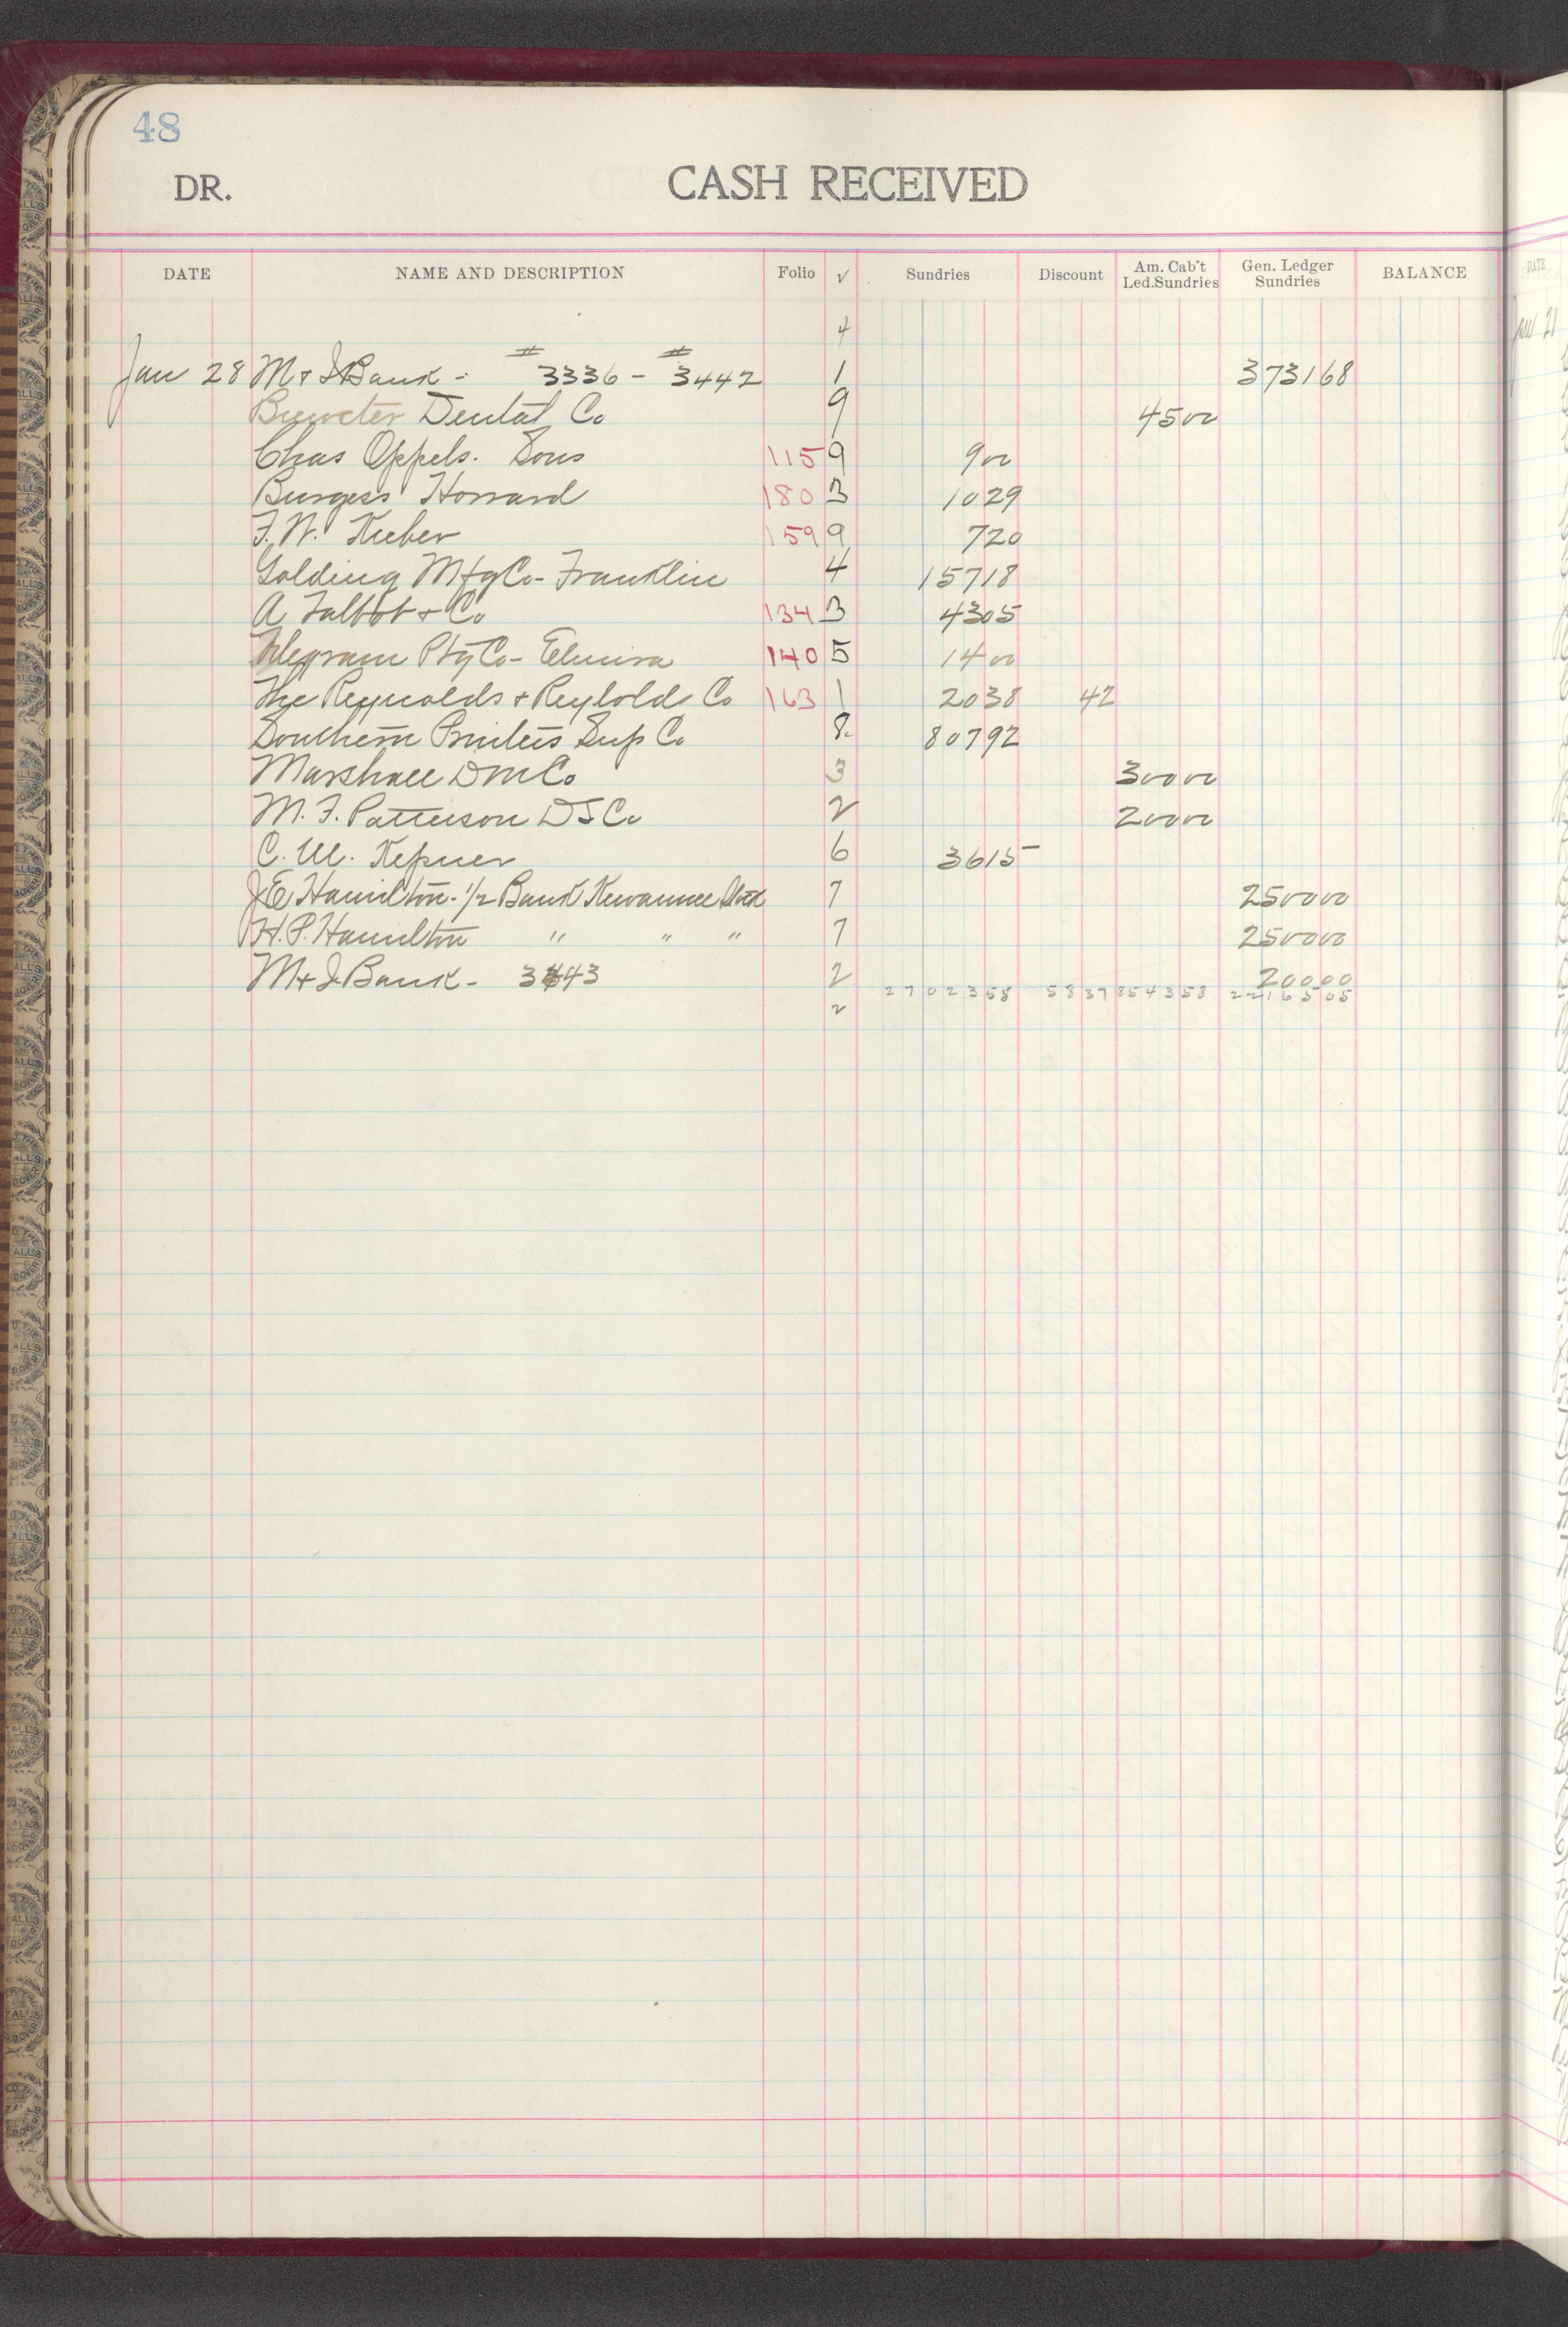 48
DR. CASH RECEIVED
DATE NAME AND DESCRIPTION Folio √ Sundries Discount Am. Cab't Led.Sundries Gen. Ledger Sundries BALANCE
4
Jan 28 M & I Bank - #3336 - #3442 1 373168
Brewster Dental Co 9 4500
Chas Oppels. Sons 115 9 900
Burgess Howard 180 3 1029
F. W. Kieber 159 9 720
Golding Mfg Co - Franklin 4 15718
A Talbot & Co 134 3 4305
Telegram Ptg Co - Elmira 140 5 1400
The Reynolds & Reylolds Co 163 1 2038 42
Southern Printers Sup Co 8 80792
Marshall D M Co 3 30000
M. F. Patterson D S Co 2 20000
C. W. Kepner 6 3615
J E Hamilton - 1/2 Bank Kewaunee 7 250000
H. P. Hamilton " " " 7 250000
M & I Bank - 3443 2 20000
2702358 5837 854358 2216505
2
DATE
Jan 21